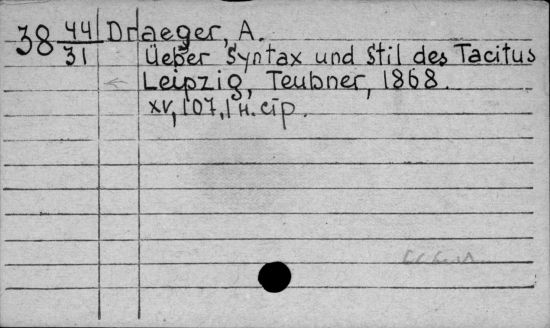 38 44/31 Draeger, A.
Ueber Syntax und Stil des Tacitus
Leipzig, Teubner, 1868.
XV, 107, 1 н. стр.